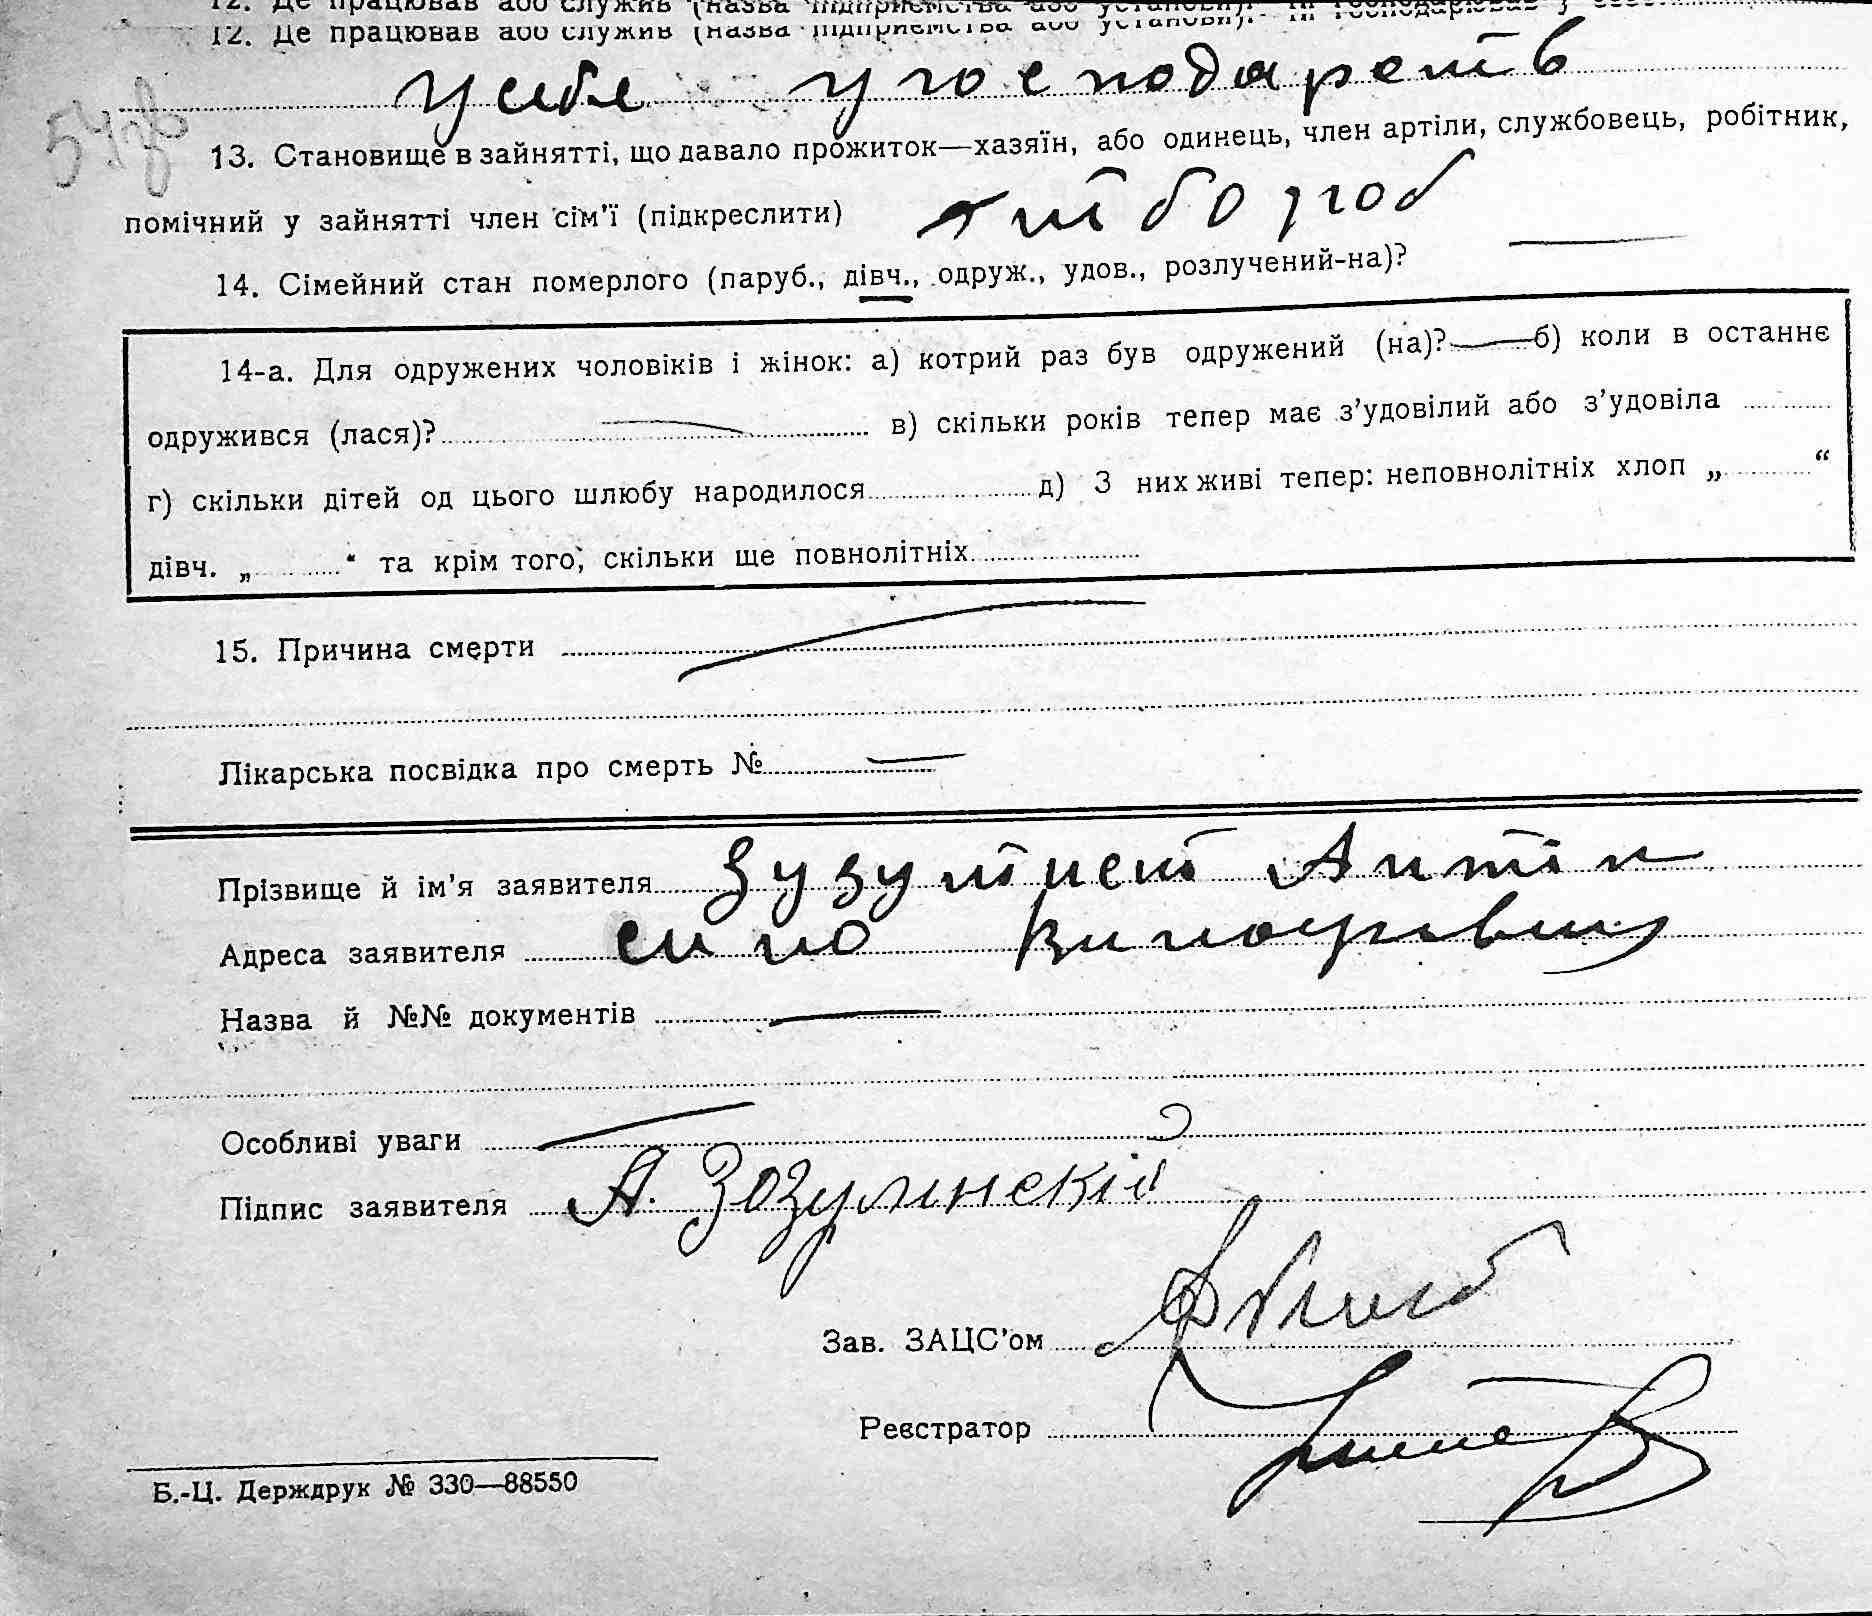 12. Де працював або служив (назва підприємства або установи).
12. Де працював або служив (назва підприємства або установи).
у себе у господарстві
13. Становище в зайнятті, що давало прожиток—хазяїн, або одинець, член артіли, службовець, робітник,
помічний у зайнятті член сім'ї (підкреслити) хлібороб
14. Сімейний стан померлого (паруб., дівч., одруж., удов., розлучений-на)?
14-а. Для одружених чоловіків і жінок: а) котрий раз був одружений (на)? б) коли в останнє
одружився (лася)? в) скільки років тепер має з'удовілий або з'удовіла
г) скільки дітей од цього шлюбу народилося д) З них живі тепер: неповнолітніх хлоп „ “
дівч. „ “ та крім того, скільки ще повнолітніх
15. Причина смерти
Лікарська посвідка про смерть №
Прізвище й ім'я заявителя Антін
Адреса заявителя село
Назва й №№ документів
Особливі уваги
Підпис заявителя А. Зозулинскій
Зав. ЗАЦС'ом
Реєстратор
Б.-Ц. Держдрук № 330—88550